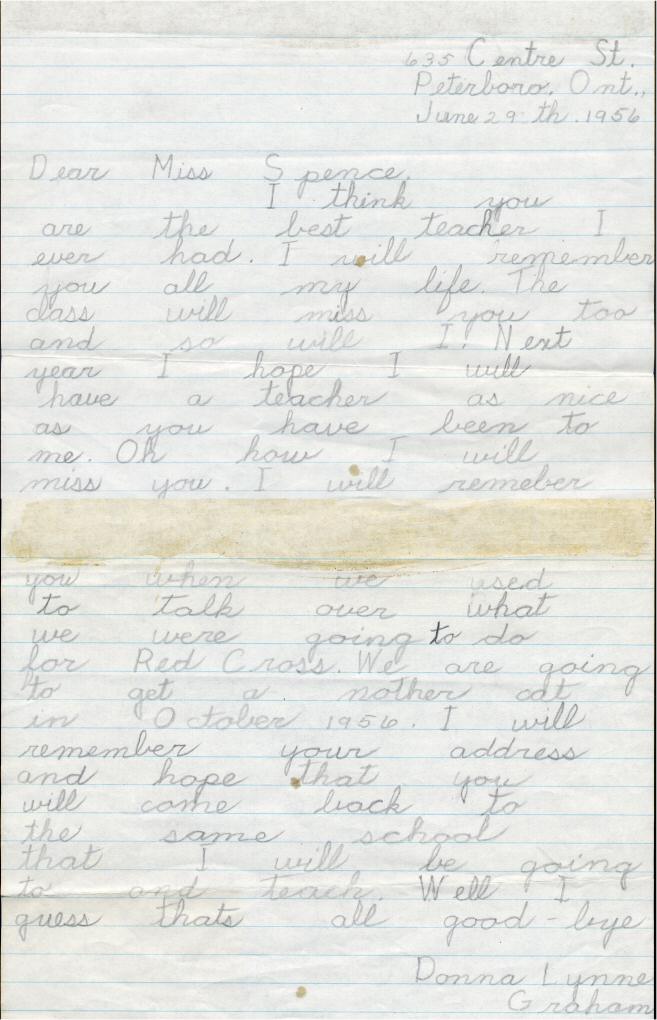 635 Centre St.
Peterboro, Ont.,
June 29 th. 1956
Dear Miss Spence,
I think you
are the best teacher I
ever had. I will remember
you all my life. The
class will miss you too
and so will I. Next
year I hope I will
have a teacher as nice
as you have been to
me. Oh how I will
miss you. I will remeber
you when we used
to talk over what
we were going to do
for Red Cross. We are going
to get a nother cat
in October 1956. I will
remember your address
and hope that you
will come back to
the same school
that I will be going
to and teach. Well I
guess thats all good-bye
Donna Lynne
Graham